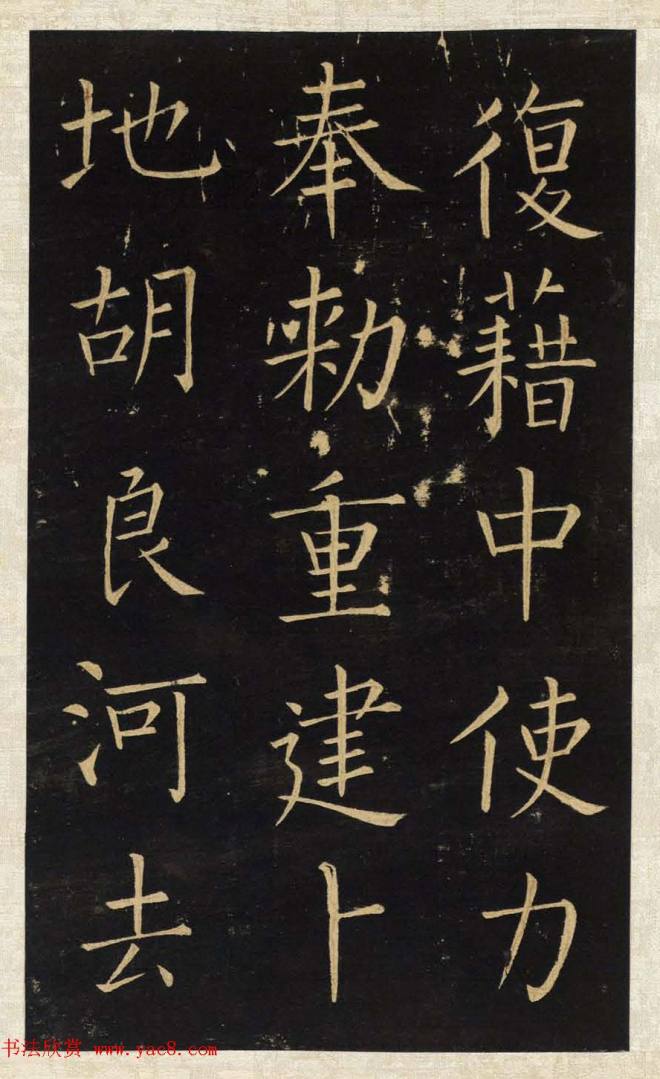 復藉中使力
奉勅重建卜
地胡良河去
书法欣赏 www.yac8.com